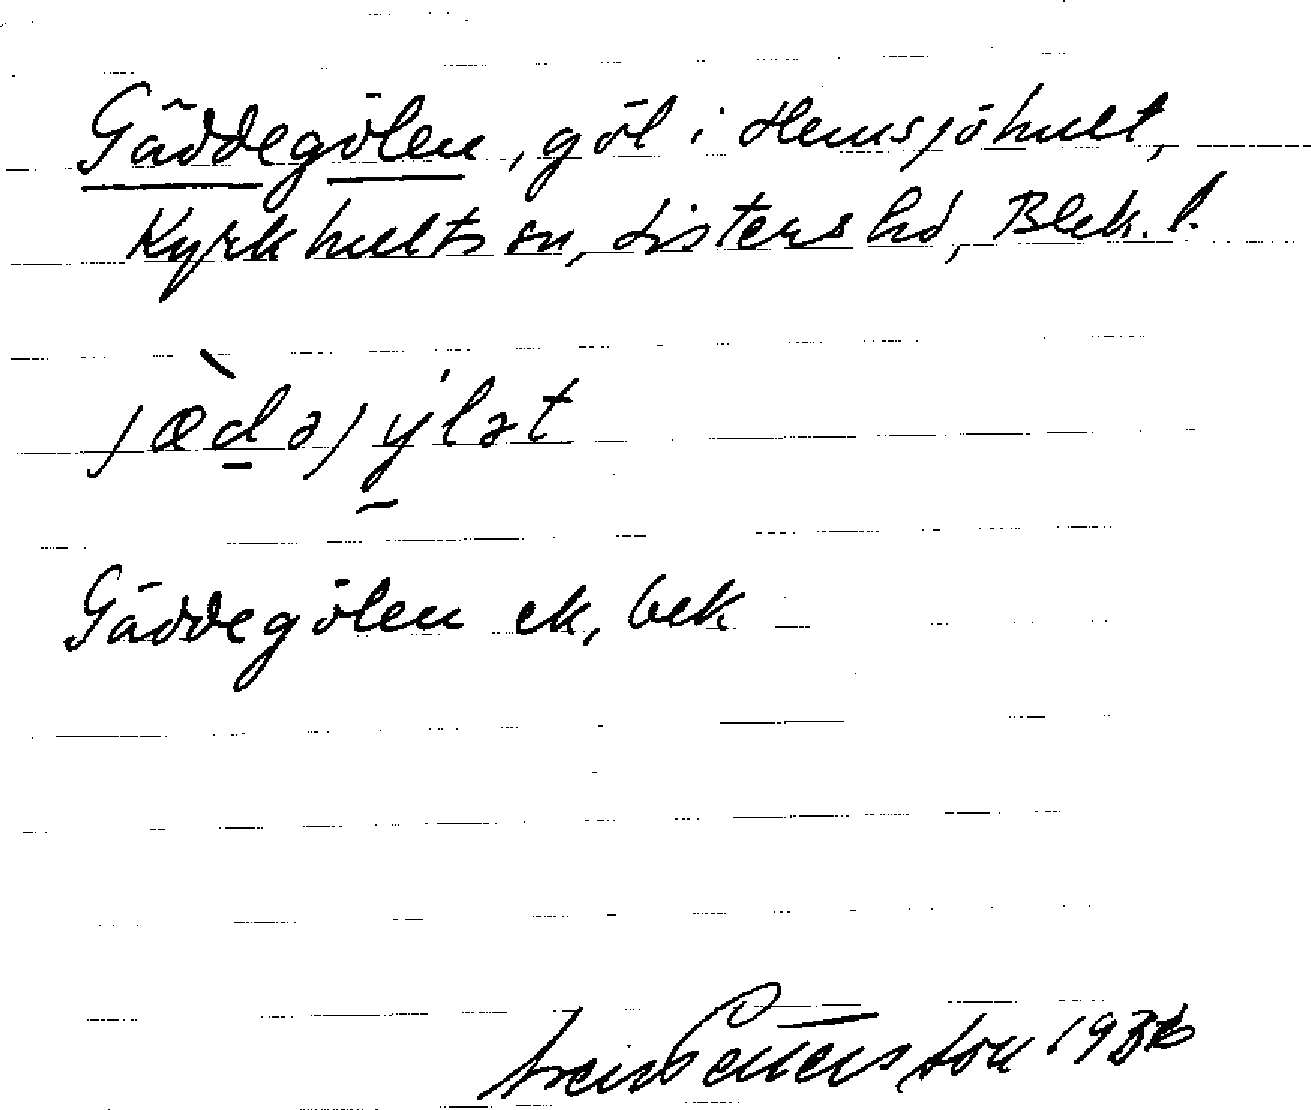 Gäddegölen, göl i Hemsjöhult,
Kyrkhults sn, Listers hd, Blek. l.
jæ̀dəjýlət
Gäddegölen ek, bek
Pettersson 193